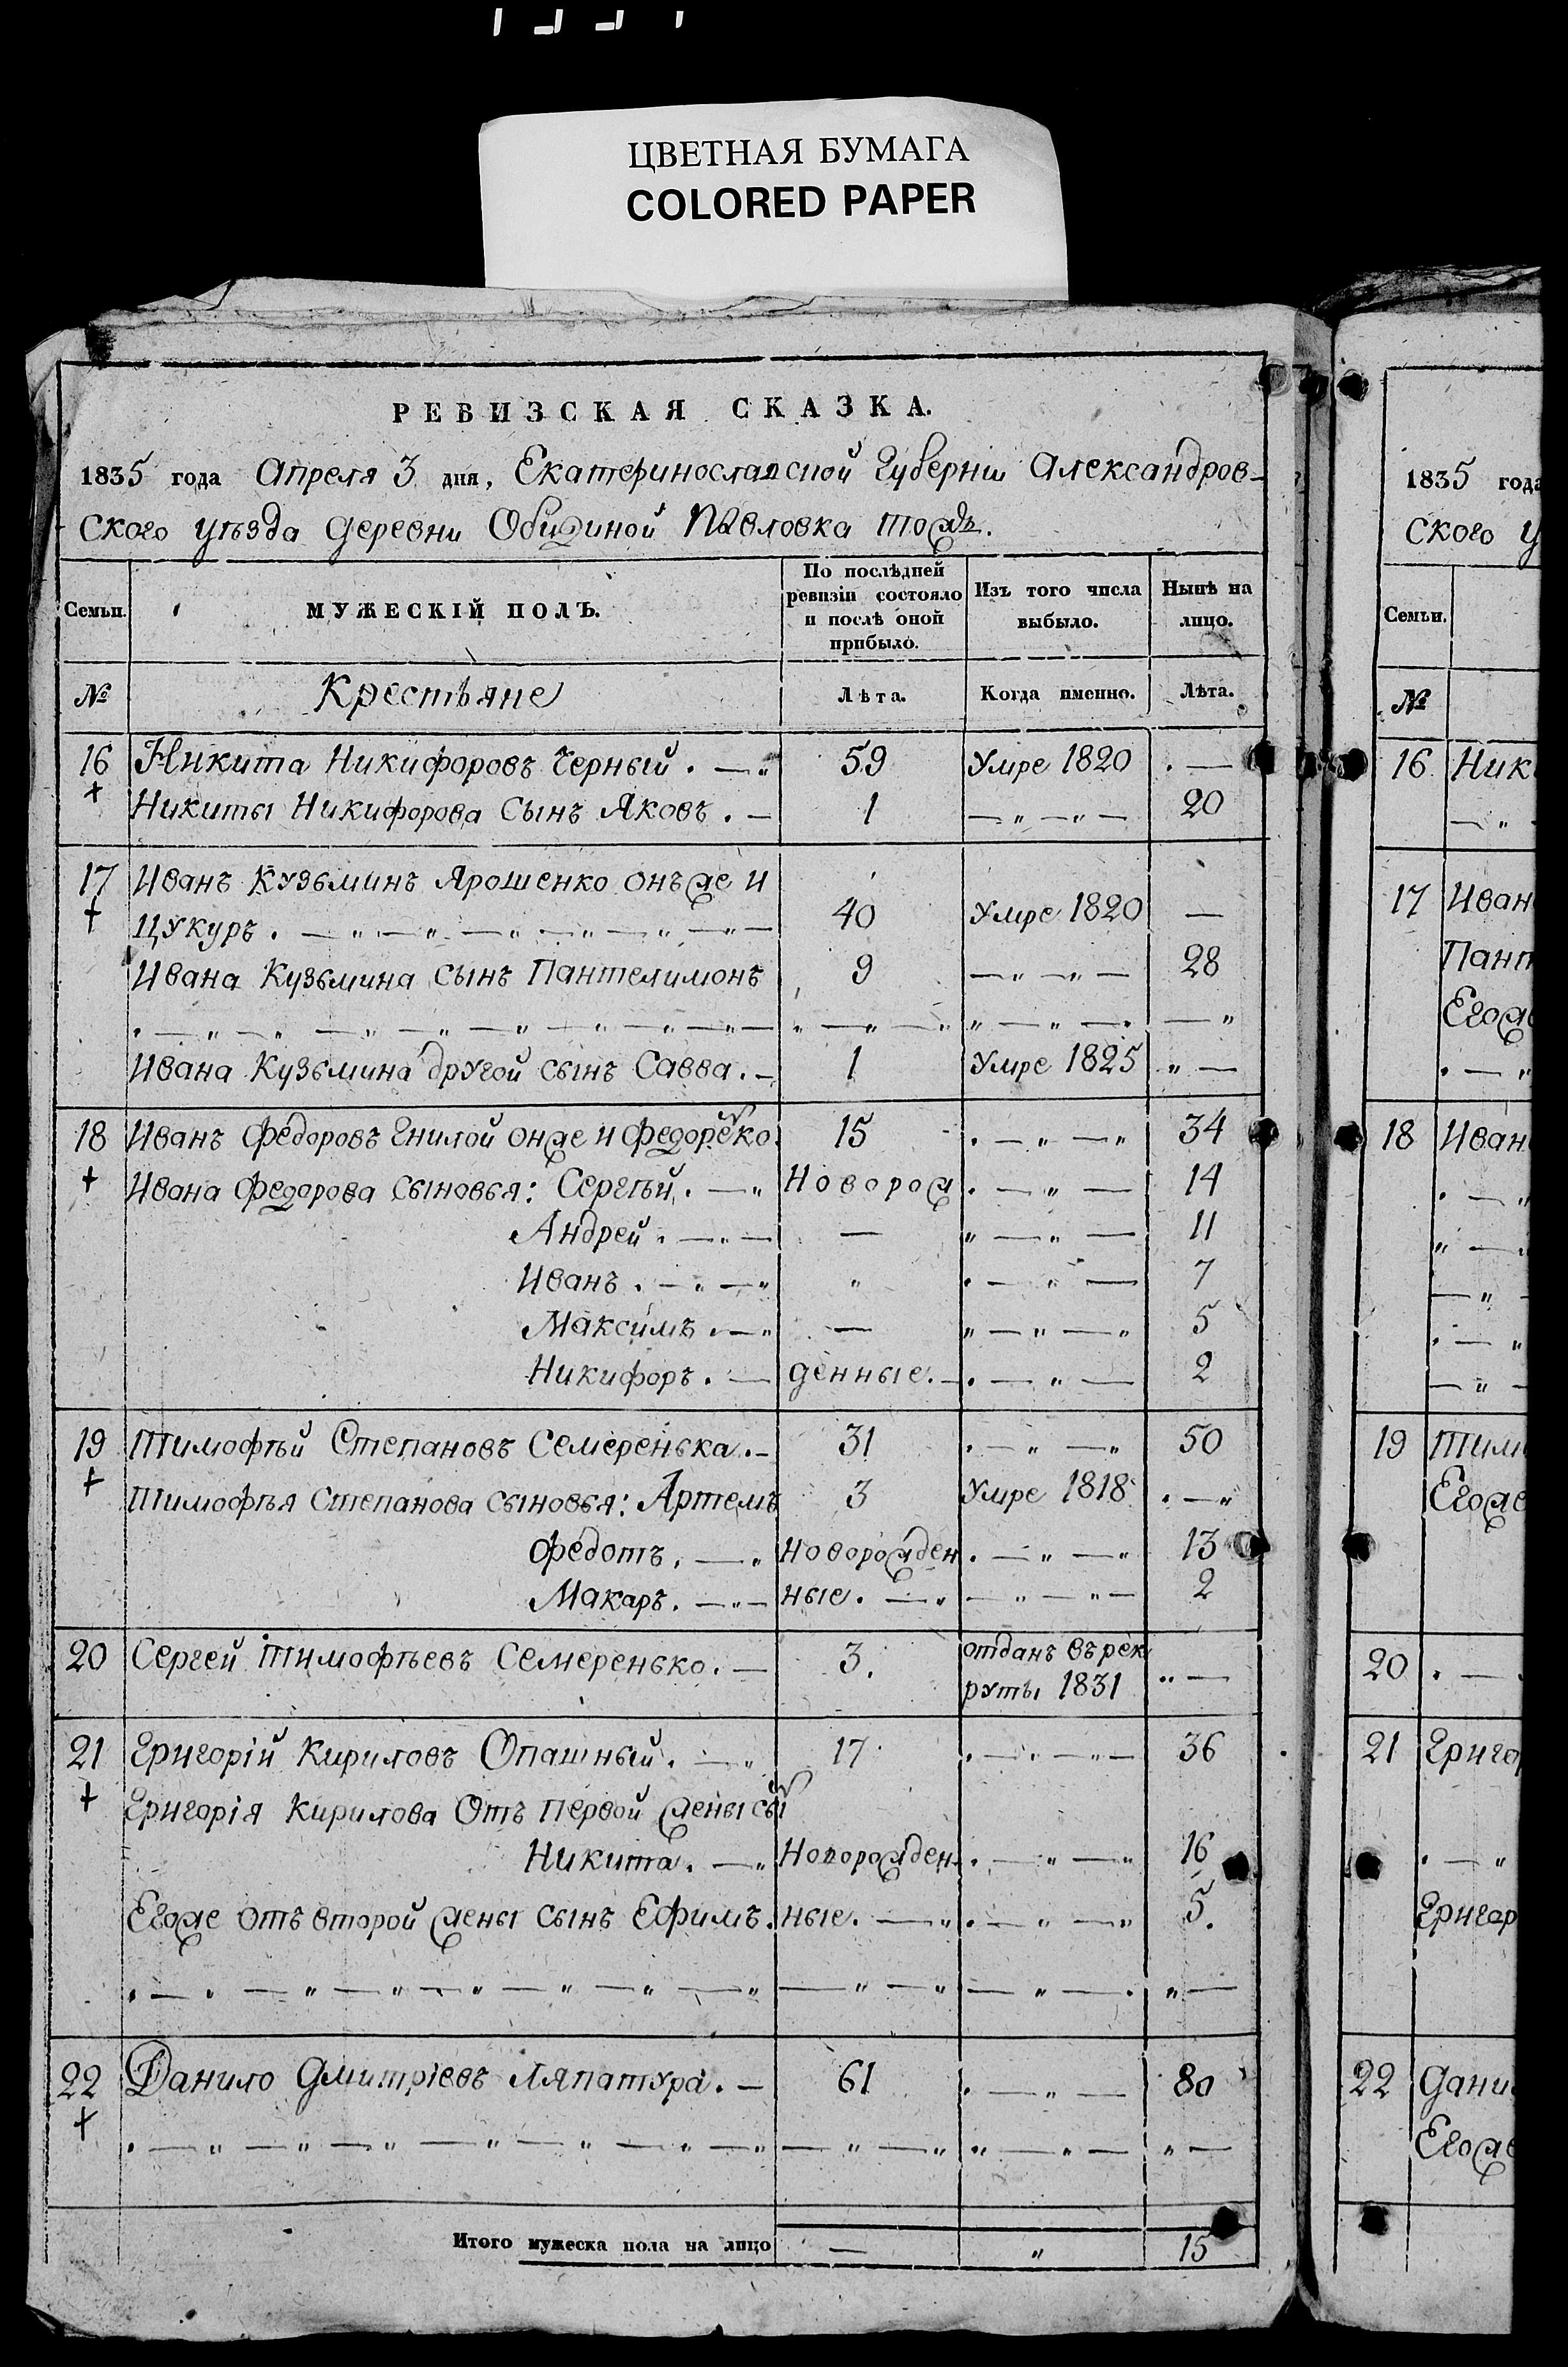 ЦВЕТНАЯ БУМАГА
COLORED PAPER
РЕВИЗСКАЯ СКАЗКА.
1835 года Апреля 3 дня, Екатеринославской Губерніи Александров-
ского уѣзда деревни Обидиной Павловка тожъ.
Семьи. МУЖЕСКІЙ ПОЛЪ. По послѣдней ревизіи состояло и послѣ оной прибыло. Изъ того числа выбыло. Нынѣ на лицо.
№ Крестьяне Лѣта. Когда именно. Лѣта.
16 Никита Никифоровъ Черный. — „ 59 Умре 1820 . —
+ Никиты Никифорова сынъ Яковъ. — 1 — „ — „ — 20
17 Иванъ Кузьминъ Ярошенко онъже и
+ Цукуръ. — „ — „ — „ — „ — „ — „ — 40 Умре 1820 —
Ивана Кузьмина сынъ Пантелимонъ 9 — „ — „ — 28
. — „ — „ — „ — „ — „ — „ — „ — „ — „ — „ — „ „ — „ — . — „
Ивана Кузьмина другой сынъ Савва. — 1 Умре 1825 „ —
18 Иванъ Федоровъ Гнилой онже и Федоренко. 15 . — „ — „ 34
+ Ивана Федорова сыновья: Сергѣй. — „ Новорож . — „ — 14
Андрей. — „ — — „ — „ — 11
Иванъ. — „ — „ „ . — „ — 7
Максимъ. — „ — „ — „ — „ 5
Никифоръ. — денные. — . — „ — 2
19 Тимофѣй Степановъ Семеренька. — 31 . — „ — „ 50
+ Тимофѣя Степанова сыновья: Артемъ 3 Умре 1818 . — „
Федотъ. — „ Новорожден . — „ — „ 13
Макаръ. — „ — ные. — „ — „ — „ — 2
20 Сергей Тимофѣевъ Семеренько. — 3. отданъ въ рек
руты 1831 „ —
21 Григорій Кириловъ Опашный. — „ 17 . — „ — „ — 36
+ Григорія Кирилова отъ первой жены сынъ
Никита. — „ Новорожден- . — „ — „ 16
Егоже отъ второй жены сынъ Ефимъ. ные. — „ . — „ — „ 5.
. — „ — „ — „ — „ — „ — „ — „ — „ — „ — „ — „ — . „ —
22 Данило Дмитріевъ Ляпатура. — 61 . — „ — 80
+ . — „ — „ — „ — „ — „ — „ — „ — „ — „ „ — „ — „ —
Итого мужеска пола на лицо — „ 15
1835 года
ского у
Семьи.
№
16 Ник
— „
17 Иван
Пант
Егоже
. — „
18 Иван
. — „
„ — „
— „
. — „
— „ —
19 Тим
Егоже
20 . —
21 Григо
. — „
Григор
22 Дани
Егоже